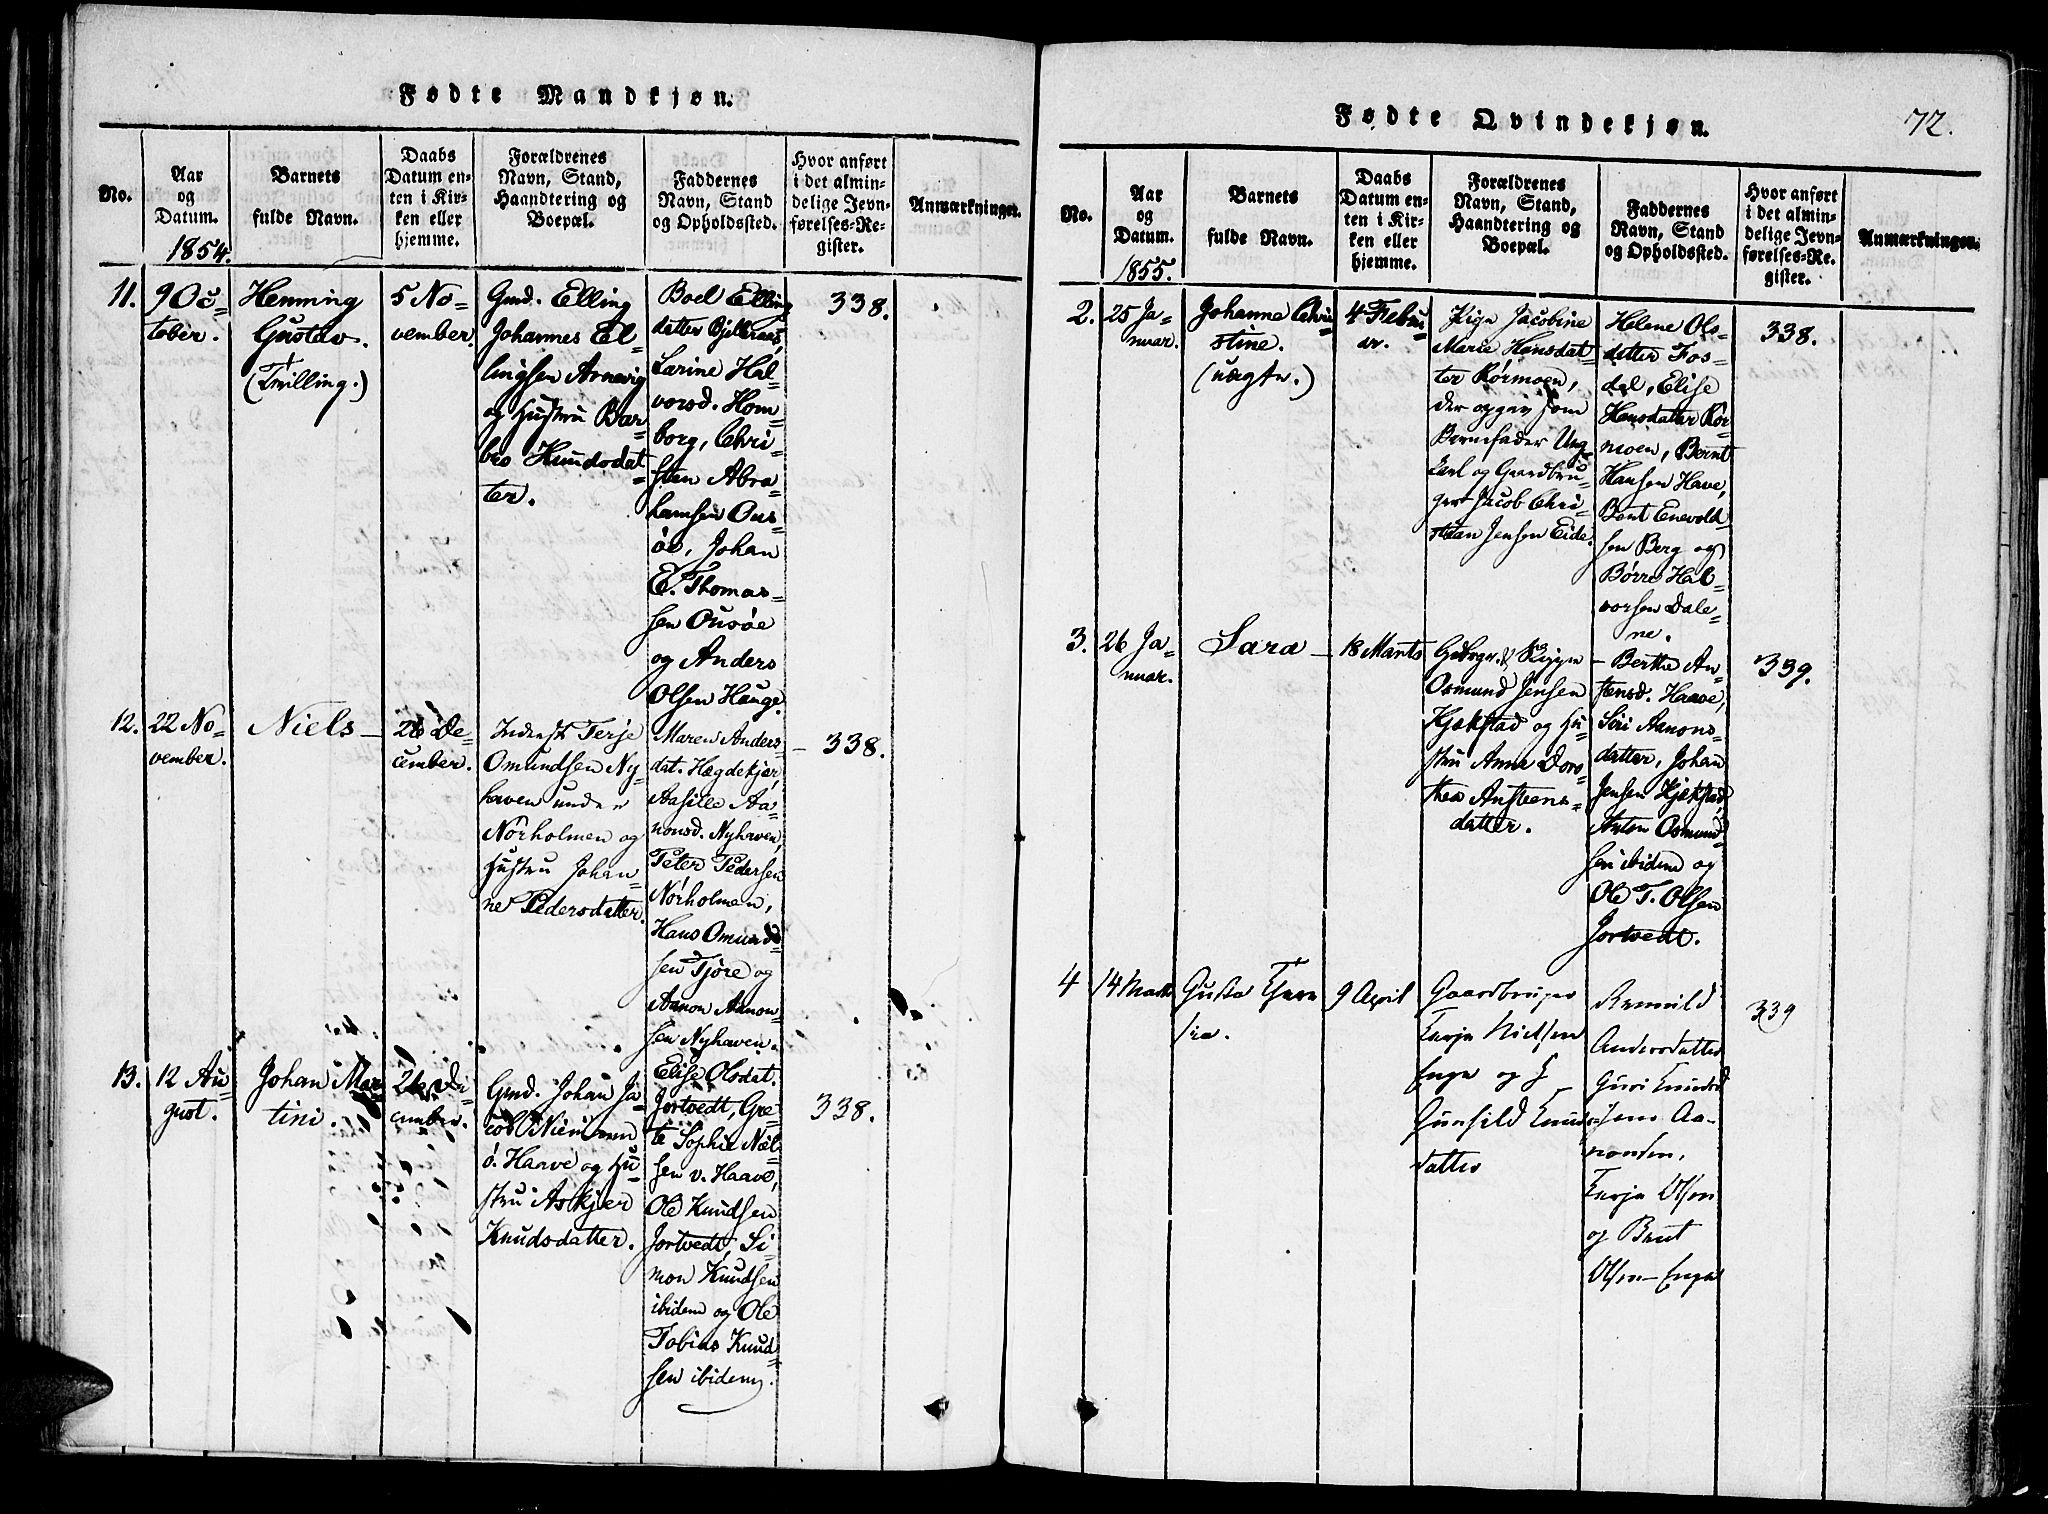 Fødte Mandkjøn.
No.
Aar
og
Datum.
1854.
Barnets
fulde Navn.
Daabs
Datum en-
ten i Kir-
ken eller
hjemme.
Forældrenes
Navn, Stand,
Haandtering og
Boepæl.
Faddernes
Navn, Stand
og Opholdssted.
Hvor anført
i det almin-
delige Jevn-
førelses-Re-
gister.
Anmærkninger.
11.
9 Oc-
tober.
Henning
Gustav.
(Tvilling.)
5 No-
vember.
Gmd. Elling
Johannes El-
lingsen Arnevig
og Hustru Bar-
bro Knudsdat-
ter.
Boel Elling
datter Bjellenæs,
Larine Hal-
vorsd. Hom-
borg, Chri-
sten Abra-
hamsen Ous-
öe, Johan
E. Thomas-
sen Ousøe
og Anders
Olsen Hauge.
338.
12.
22 No-
vember.
Niels
26 De-
cember.
Inderst Terje
Omundsen Ny-
haven under
Nörholmen og
Hustru Johan-
ne Pedersdatter.
Maren Anders-
dat. Hægdekjær,
Aasille Aa-
nonsd. Nyhaven,
Peter Pedersen
Nörholmen,
Hans Omund-
sen Tjöre og
Aanon Aanon-
sen Nyhaven.
338.
13.
12 Au-
gust.
Johan Mar
tini.
26 De-
cember.
Gmd. Johan Ja-
cob
ö. Haave og Hu-
stru Askjer
Knudsdatter.
Elise Olsdat.
Jortvedt, Gre-
te Sophie Niel-
sen v. Haave,
Ole Knudsen
Jortvedt, Si-
mon Knudsen
ibidem og Ole
Tobias Knud-
sen ibidem.
338.
Fødte Qvindekjøn.
72.
No.
Aar
og
Datum.
1855.
Barnets
fulde Navn.
Daabs
Datum en-
ten i Kir-
ken eller
hjemme.
Forældrenes
Navn, Stand,
Haandtering og
Boepæl.
Faddernes
Navn, Stand
og Opholdssted.
Hvor anført
i det almin-
delige Jevn-
førelses-Re-
gister.
Anmærkninger.
2.
25 Ja-
nuar.
Johanne Chri-
stine.
(uægte.)
4 Febru-
ar.
Pige Jacobine
Marie Hansdat-
ter Rörmoen,
der opgav som
Barnefader Ung-
karl og Gaardbru-
ger Jacob Chri-
stian Jensen Eide.
Helene Ols-
datter Fos-
dal, Elise
Hansdatter Rör-
moen, Bernt
Hansen Have,
Bent Enevold-
sen Berg og
Börre Hal-
vorsen Dale-
ne.
338.
3.
26 Ja-
nuar.
Sara
18 Marts
Osmund Jensen
Kjækstad og Hu-
stru Anne Doro-
thea Austens-
datter.
Berthe Au-
stensd. Haave,
Siri Aanons-
datter, Johan
Jensen Kjækstad,
Anton Osmund-
sen ibidem og
Ole T. Olsen
Jortvedt.
339.
4
14 Marts
Gusta
9 April
Gaardbruger
Terje Nielsen
Enge og H
Gunhild Knuds-
datter
Andersdatter
Guri Knudsd
Jens Aa-
nonsen,
Terje Olsen
og Bent
Olsen Enge
339